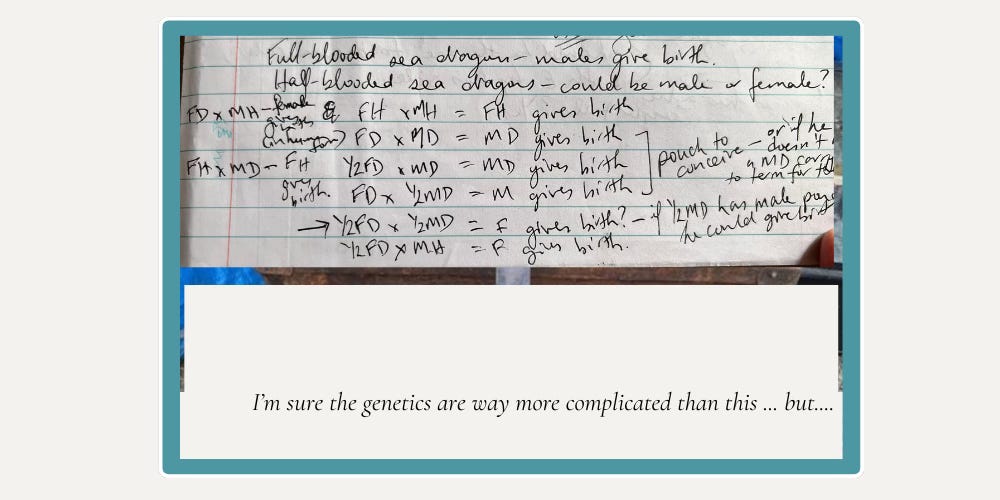 Full-blooded sea dragons – males give birth.
Half-blooded sea dragons – could be male or female?
FD x MH – female gives birth & FH x MH = FH gives birth
FD x MD = MD gives birth
FH x MD – FH gives birth. ½FD x MD = MD gives birth
FD x ½MD = M gives birth
pouch to conceive – or if he doesn't, a MD can't to term for
→ ½FD x ½MD = F gives birth? – if ½MD has male
he could give
½FD x MH = F gives birth.
I'm sure the genetics are way more complicated than this ... but....